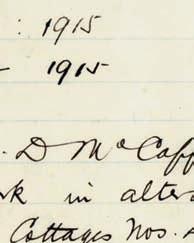 : 1915
— 1915
. D McCaff
rk in alter
Cottages Nos.